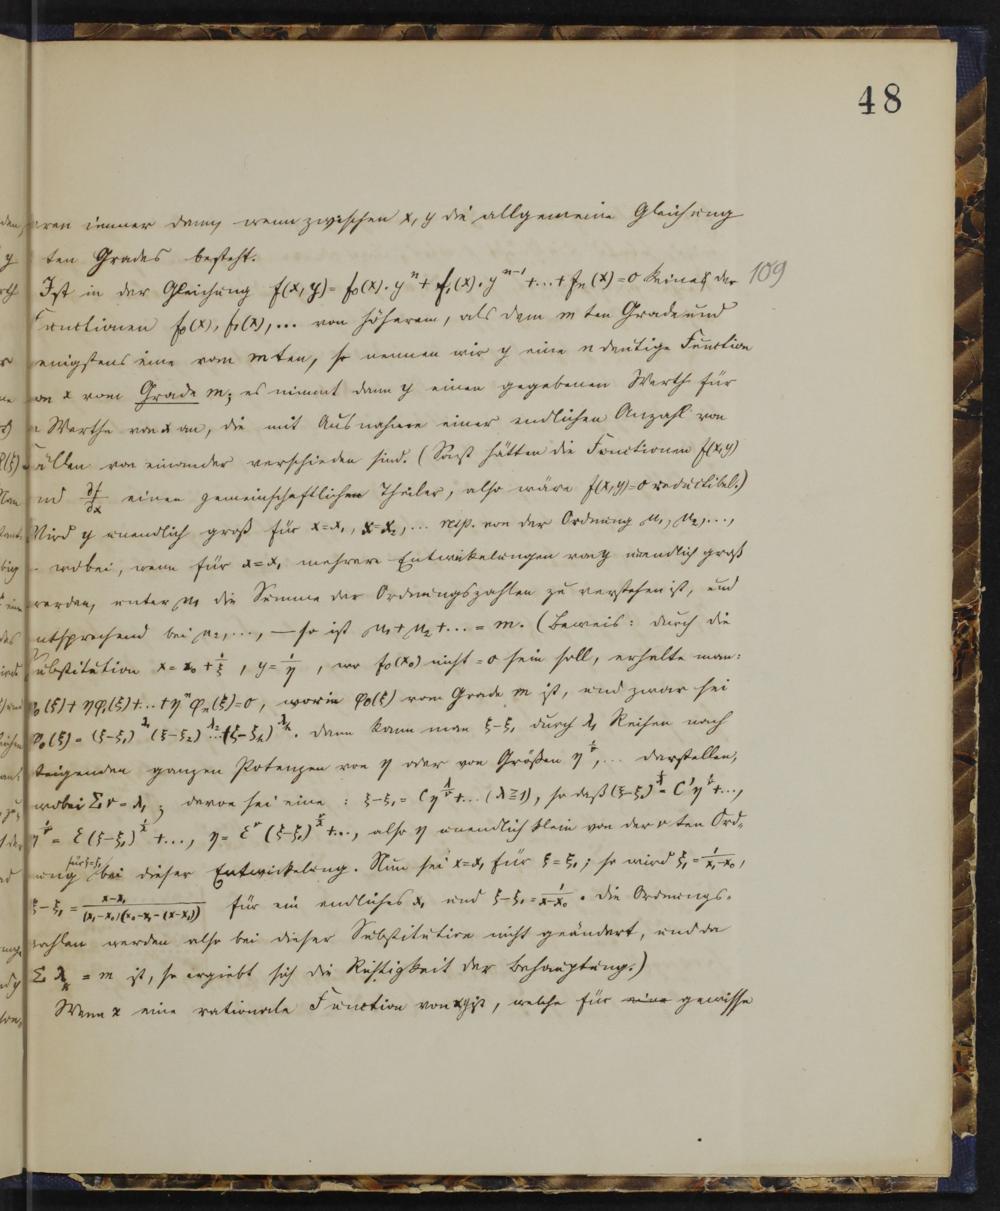 48
109
immer dann, wenn zwischen x, y die allgemeine Gleichung
ten Grades besteht.
Ist in der Gleichung f(x, y) = f₀(x)·yⁿ + f₁(x)·yⁿ⁻¹ + ... + fₙ(x) = 0 keine der
Functionen f₀(x), f₁(x), ... von höherem, als dem m ten Grade und
enigstens eine vom mten, so nennen wir y eine n deutige Function
on x vom Grade m; es nimmt dann y einen gegebenen Werth für
Werthe von x an, die mit Ausnahme einer endlichen Anzahl von
ällen von einander verschieden sind. (Sonst hätten die Functionen f(x,y)
nd ∂f/∂x einen gemeinschaftlichen Theiler, also wäre f(x,y)=0 reductibel.)
Wird y unendlich groß für x=x₁, x=x₂, ... resp. von der Ordnung μ₁, μ₂, ...,
– wobei, wenn für x=x₁ mehrere Entwickelungen von y unendlich groß
werden, unter μ₁ die Summe der Ordnungszahlen zu verstehen ist, und
ntsprechend bei μ₂, ..., — so ist μ₁+μ₂+... = m. (Beweis: durch die
ubstitution x = x₀ + 1/ξ, y = 1/η, wo f₀(x₀) nicht = 0 sein soll, erhalte man:
φ₀(ξ) + ηφ₁(ξ) + ... + ηⁿφₙ(ξ) = 0, worin φ₀(ξ) vom Grade m ist, und zwar sei
φ₀(ξ) = (ξ-ξ₁)^λ₁ (ξ-ξ₂)^λ₂ ... (ξ-ξₖ)^λₖ. dann kann man ξ-ξ₁ durch λ₁ Reihen nach
teigenden ganzen Potenzen von η oder von Größen η^1/ν, ... darstellen,
wobei Σν = λ₁; davon sei eine: ξ-ξ₁ = Cη^λ/ν + ... (λ≧1), so daß (ξ-ξ₁)^1/λ = C'η^1/ν + ...,
η^1/ν = ε(ξ-ξ₁)^1/λ + ..., η = ε^ν(ξ-ξ₁)^ν/λ + ..., also η unendlich klein von der ν ten Ord-
ung für ξ=ξ₁ bei dieser Entwickelung. Nun sei x=x₁ für ξ=ξ₁; so wird ξ₁ = 1/(x₁-x₀),
ξ-ξ₁ = (x-x₁)/((x₁-x₀)(x₀-x₁-(x-x₁))) für ein endliches x₁ und ξ-ξ₁ = 1/(x-x₀). Die Ordnungs-
zahlen werden also bei dieser Substitution nicht geändert, und da
Σ λₖ = m ist, so ergiebt sich die Richtigkeit der Behauptung.)
Wenn z eine rationale Function von x, y ist, welche für gewisse